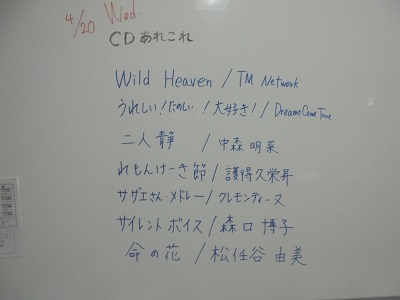 4/20 Wed.
CDあれこれ
Wild Heaven / TM Network
うれしい!たのしい!大好き!/ Dreams Come True
二人静 / 中森明菜
れもんけーき節 / 護得久栄昇
サザエさん・メドレー / クレモンティーヌ
サイレントボイス / 森口博子
命の花 / 松任谷由美